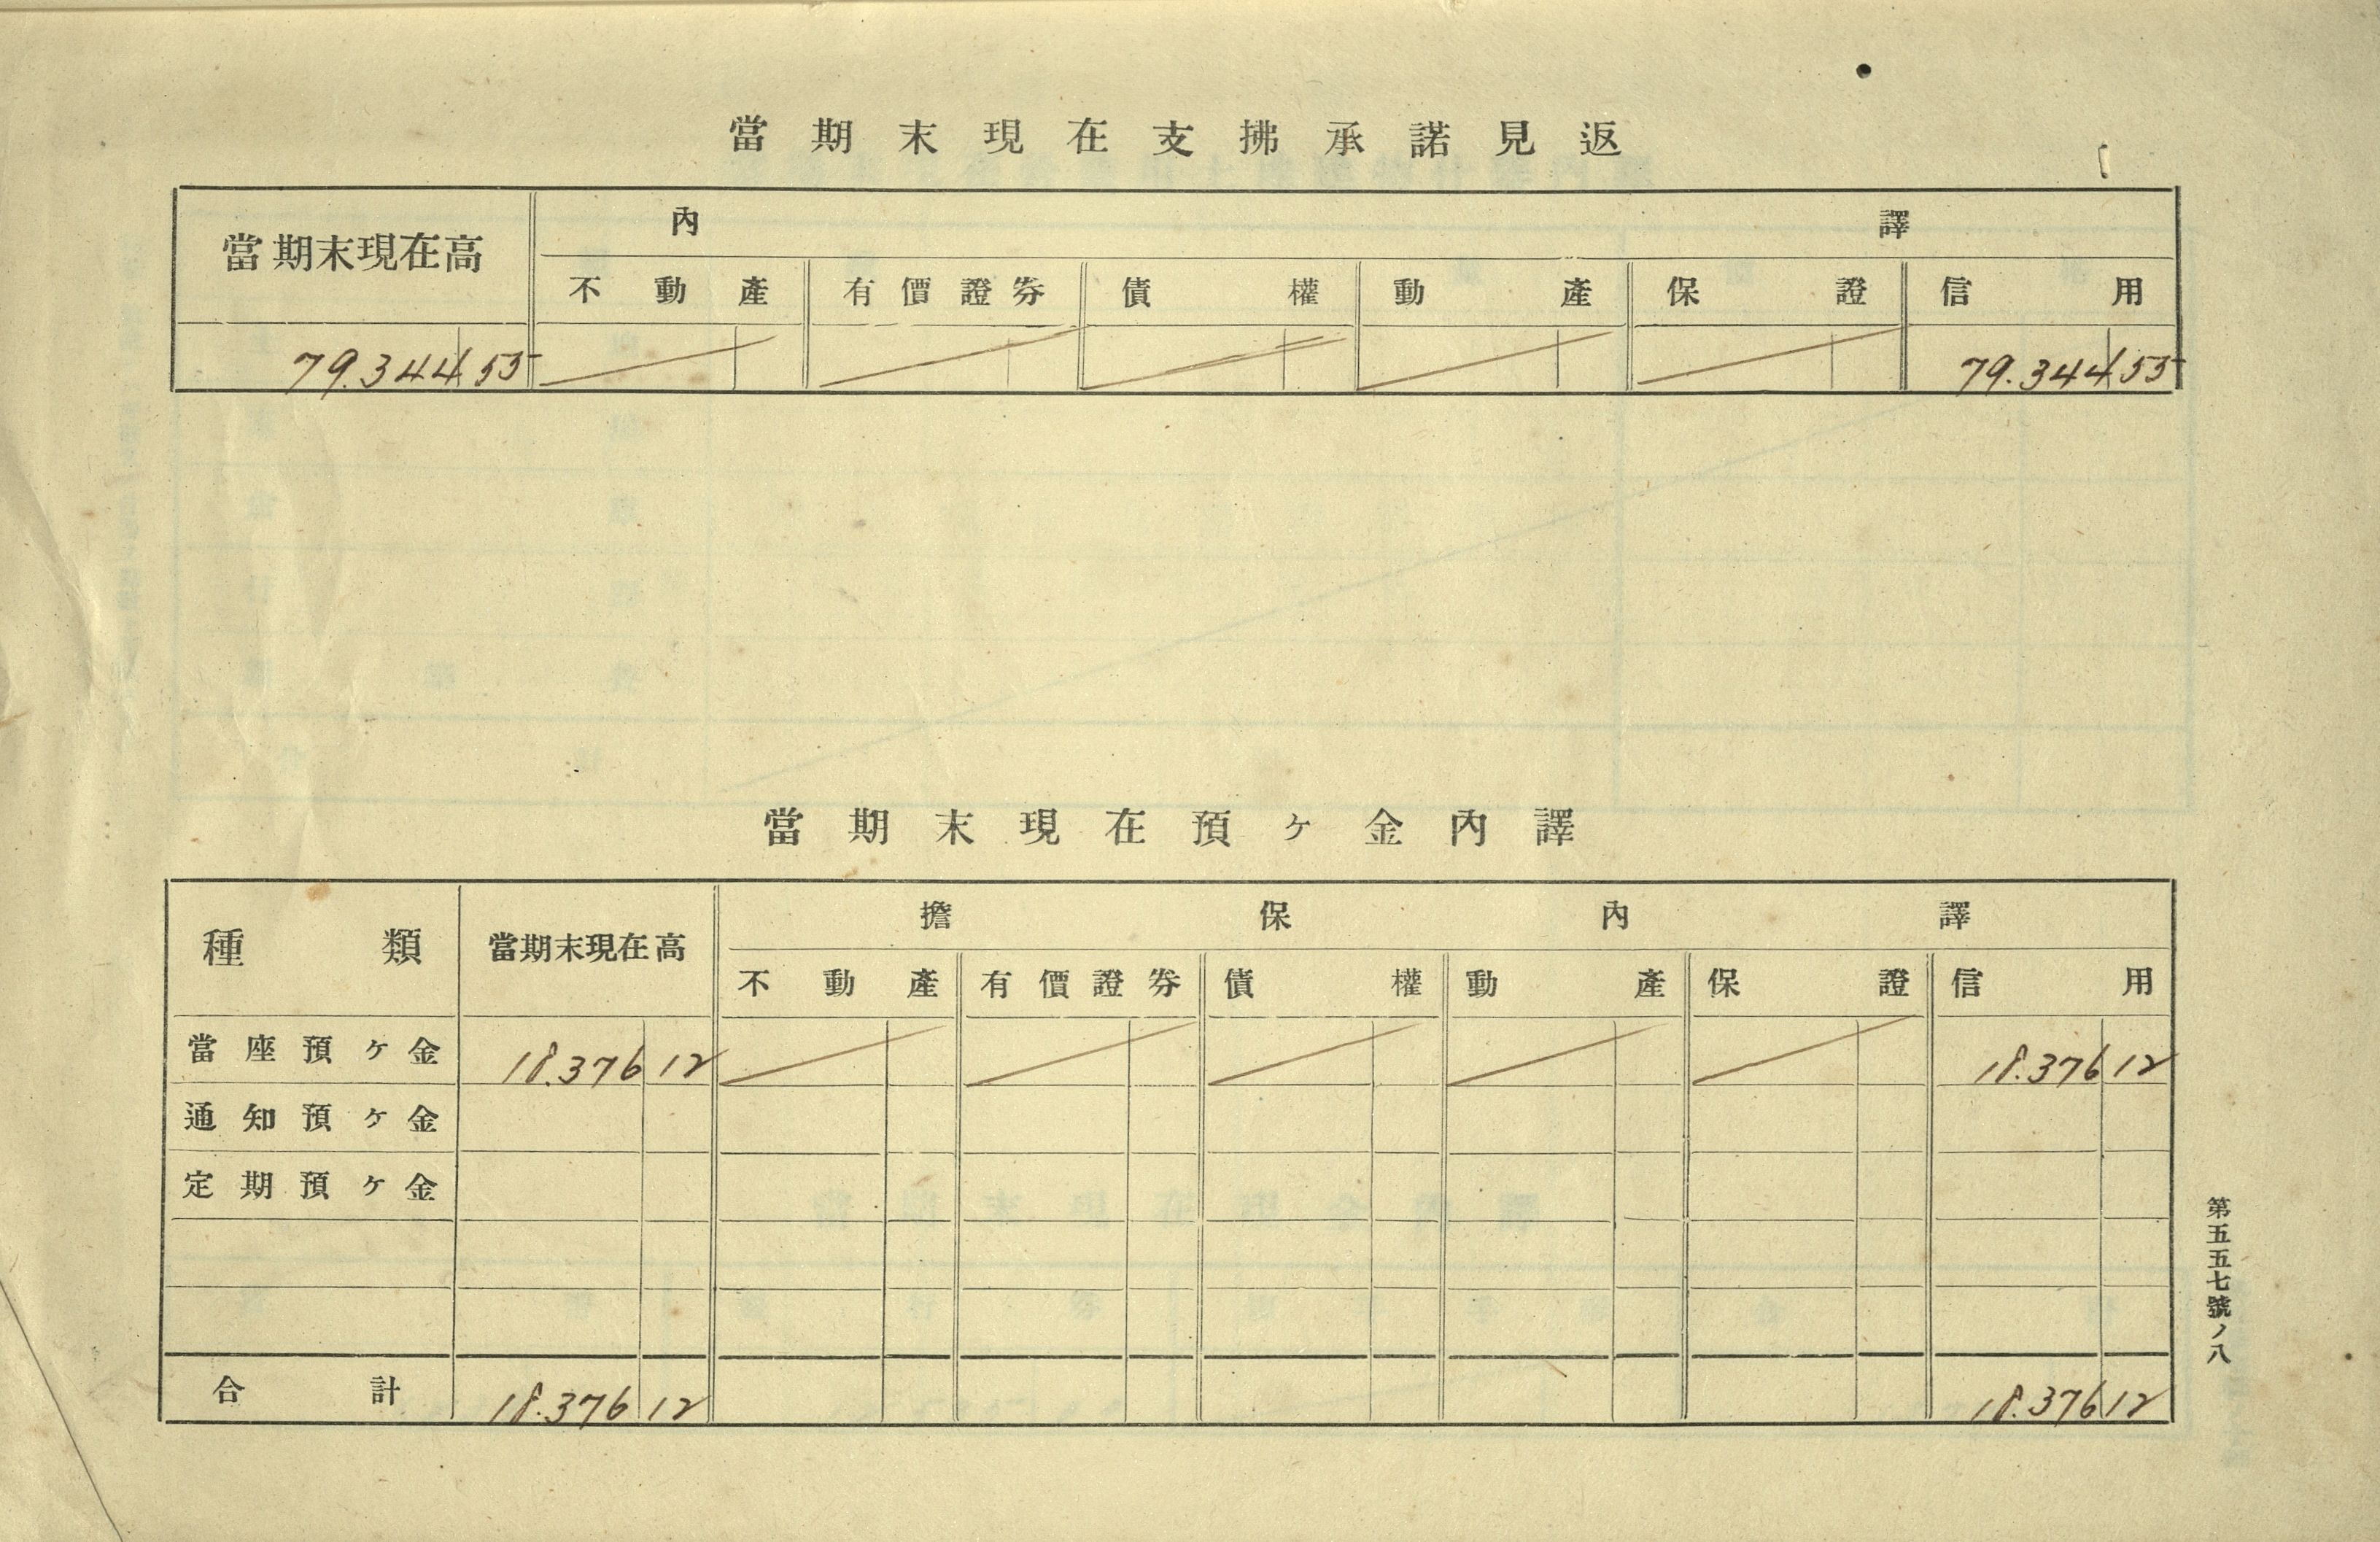 當期末現在支拂承諾見返
當期末現在高 內譯
不動產 有價證券 債權 動產 保證 信用
79.344 55 79.344 55
當期末現在預ヶ金內譯
種類 當期末現在高 擔保內譯
不動產 有價證券 債權 動產 保證 信用
當座預ヶ金 18.376 12 18.376 12
通知預ヶ金
定期預ヶ金
合計 18.376 12 18.376 12
第五五七號ノ八